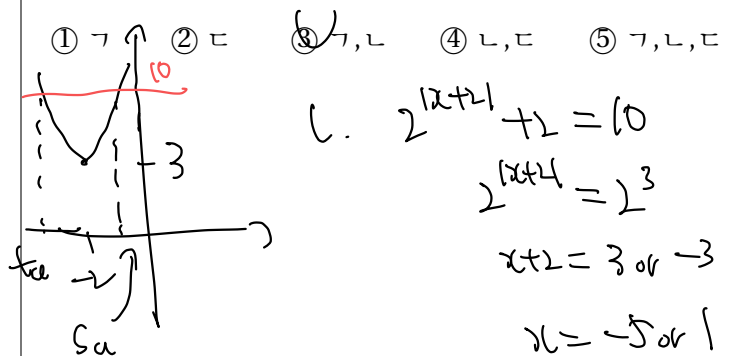 ① ㄱ ② ㄷ ③ ㄱ,ㄴ ④ ㄴ,ㄷ ⑤ ㄱ,ㄴ,ㄷ
10
3
-2
ㄴ. 2^{|x+2|} + 2 = 10
2^{|x+2|} = 2^3
x+2 = 3 or -3
x = -5 or 1